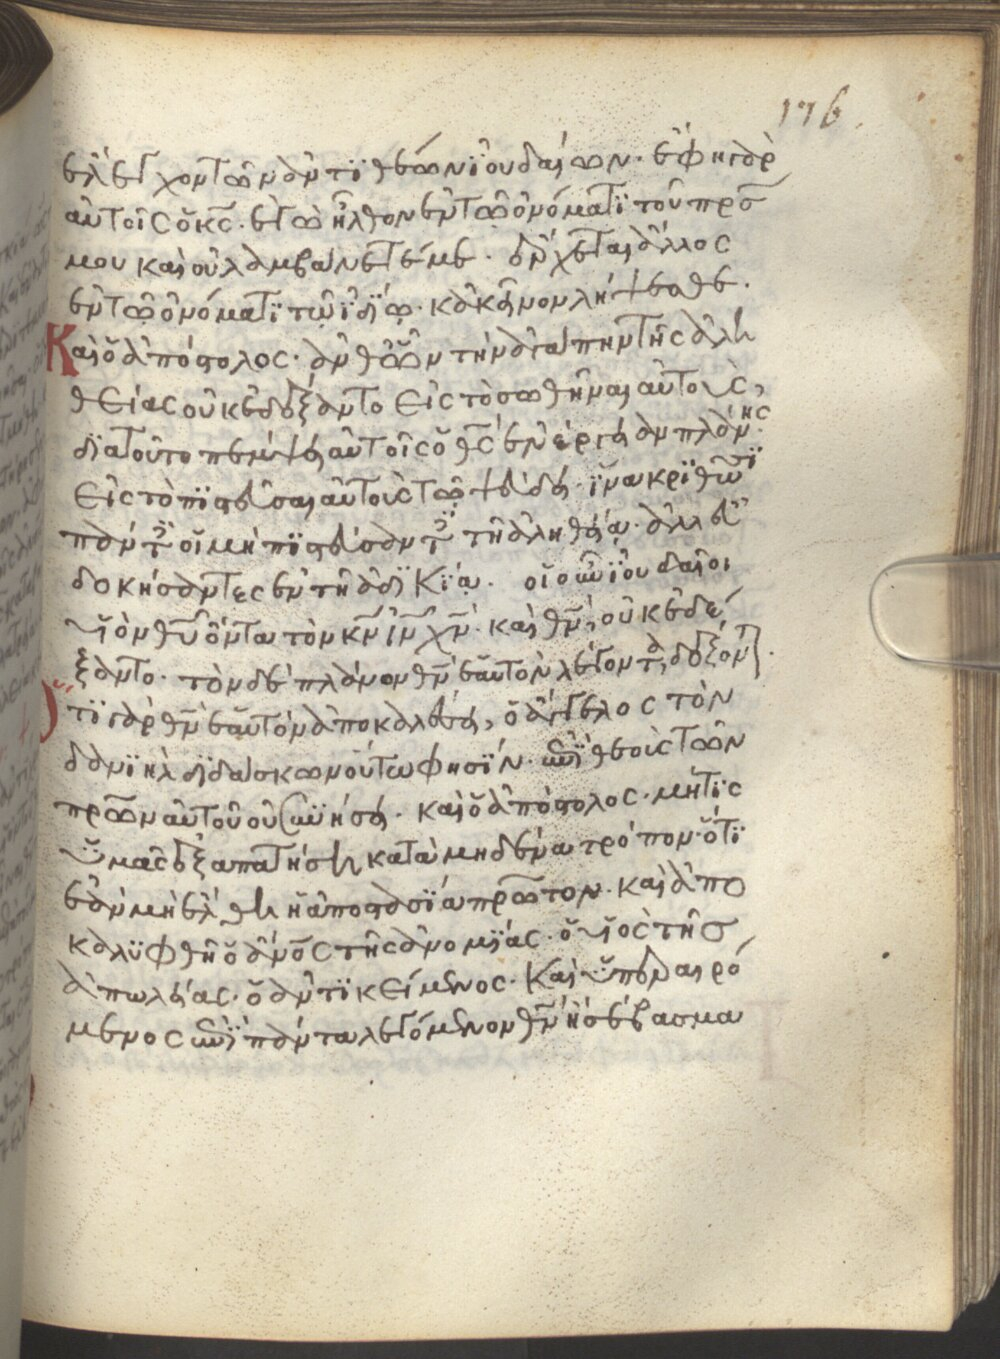 176
ἐλέγχων τῶν ἀντιθέων ἰουδαίων. ἔφη γὰρ
αὐτοῖς ὁ κς. ἐγὼ ἦλθον ἐν τῷ ὀνόματι τοῦ πρς
μου καὶ οὐ λαμβάνετέ με. ἔρχεται ἄλλος
ἐν τῷ ὀνόματι τῷ ἰδίῳ. κἀκεῖνον λήψεσθε.
Καὶ ὁ ἀπόστολος. ἀνθ' ὧν τὴν ἀγάπην τῆς ἀλη
θείας οὐκ ἐδέξαντο εἰς τὸ σωθῆναι αὐτοὺς,
διὰ τοῦτο πέμψει αὐτοῖς ὁ θς ἐνέργειαν πλάνης
εἰς τὸ πιστεῦσαι αὐτοὺς τῷ ψεύδει. ἵνα κριθῶσι
πάντες οἱ μὴ πιστεύσαντες τῇ ἀληθείᾳ. ἀλλ' εὐ
δοκήσαντες ἐν τῇ ἀδικίᾳ. οἱ οὖν ἰουδαῖοι
υἱὸν θυ ὄντα τὸν κν ιν χν. καὶ θν, οὐκ ἐδέ
ξαντο. τὸν δὲ πλάνον θν ἑαυτὸν λέγοντα, δέξονται.
ὅτι γὰρ θν ἑαυτὸν ἀποκαλέσει, ὁ ἄγγελος τὸν
δανιὴλ διδάσκων οὕτω φησίν. ἐπὶ θεοὺς τῶν
πρων αὐτοῦ οὐ συνήσει. καὶ ὁ ἀπόστολος. μή τις
ὑμᾶς ἐξαπατήσῃ κατὰ μηδένα τρόπον. ὅτι
ἐὰν μὴ ἔλθῃ ἡ ἀποστασία πρῶτον. καὶ ἀπο
καλυφθῇ ὁ ἀνος τῆς ἀνομίας. ὁ υἱὸς τῆς
ἀπωλείας. ὁ ἀντικείμενος. καὶ ὑπεραιρό
μενος ἐπὶ πάντα λεγόμενον θν ἢ σέβασμα